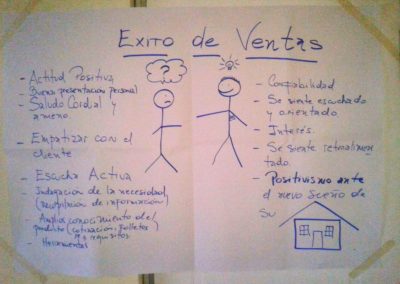 Exito de Ventas
?
- Actitud Positiva
- Buena presentación personal
- Saludo Cordial y
ameno
- Empatizar con el
cliente
- Escucha Activa
- Indagación de la necesidad
(recopilación de información)
- Amplio conocimiento del
producto (cotización, folletos
requisitos
- Herramental
- Compatibilidad
- Se siente escuchado
y orientado
- Interés.
- Se siente retroalimen
tado.
- Positivismo ante
el nuevo sueño de
su